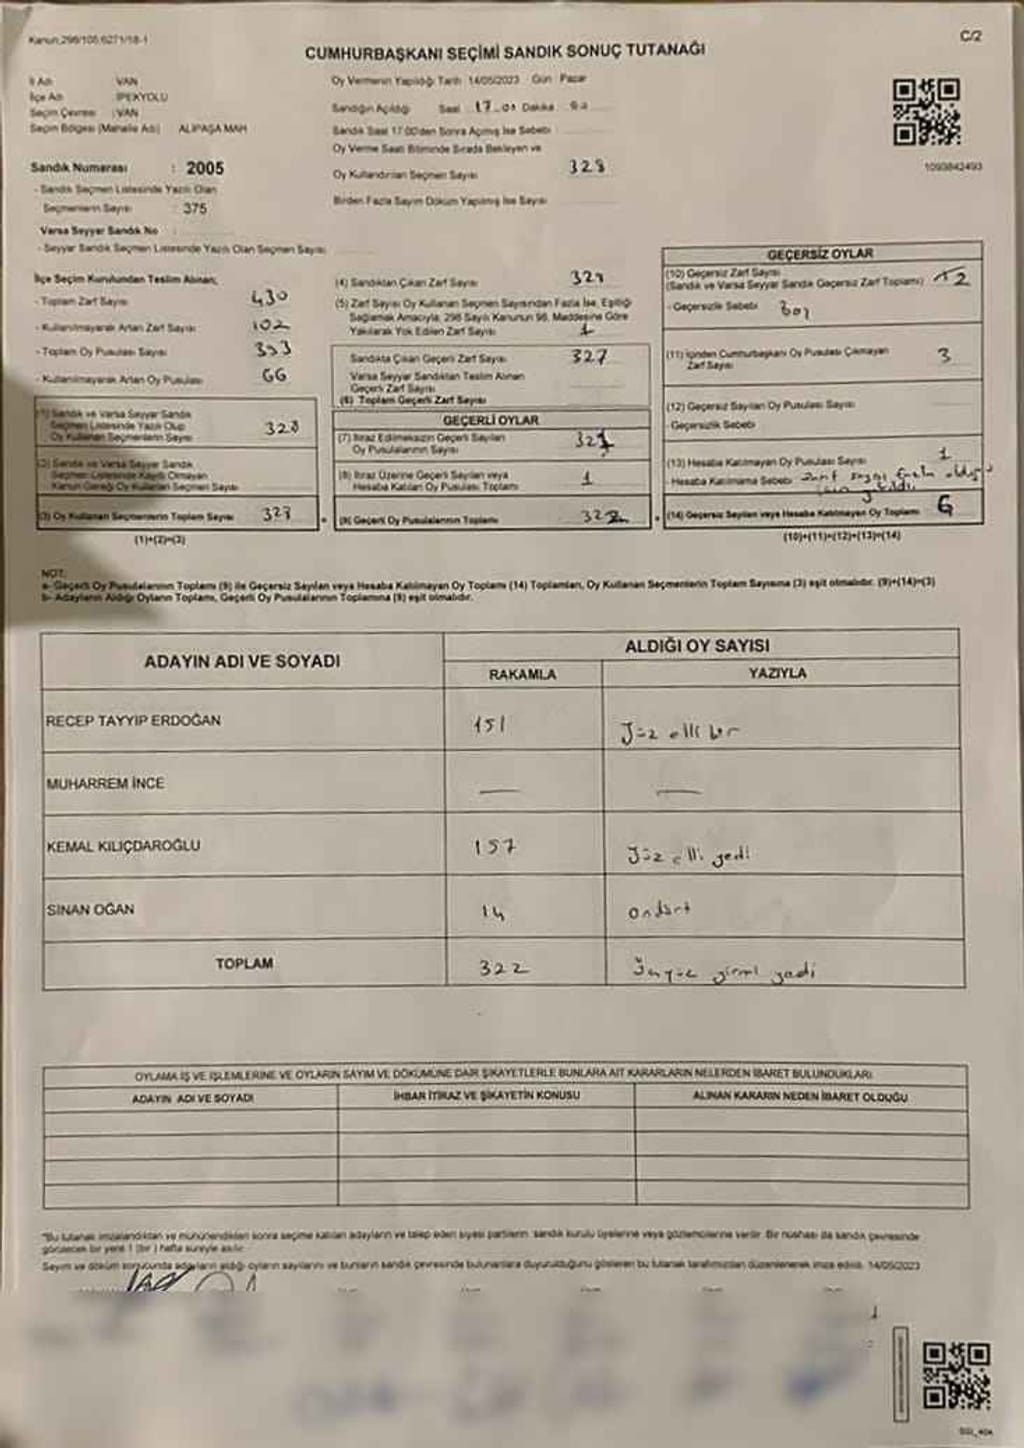 Kanun:298/105;6271/18-1
C/2
CUMHURBAŞKANI SEÇİMİ SANDIK SONUÇ TUTANAĞI
İl Adı VAN
İlçe Adı İPEKYOLU
Seçim Çevresi : VAN
Seçim Bölgesi (Mahalle Adı) ALİPAŞA MAH
Oy Vermenin Yapıldığı Tarih 14/05/2023 Gün : Pazar
Sandığın Açıldığı Saat 17.00 Dakika
Sandık Saat 17.00'den Sonra Açılmış İse Sebebi
Oy Verme Saati Bitiminde Sırada Bekleyen ve
Oy Kullandırılan Seçmen Sayısı 328
Birden Fazla Sayım Döküm Yapılmış İse Sayısı
1093842493
Sandık Numarası : 2005
- Sandık Seçmen Listesinde Yazılı Olan
Seçmenlerin Sayısı : 375
Varsa Seyyar Sandık No :
- Seyyar Sandık Seçmen Listesinde Yazılı Olan Seçmen Sayısı
İlçe Seçim Kurulundan Teslim Alınan;
- Toplam Zarf Sayısı 430
- Kullanılmayarak Artan Zarf Sayısı 102
- Toplam Oy Pusulası Sayısı 393
- Kullanılmayarak Artan Oy Pusulası 66
(1) Sandık ve Varsa Seyyar Sandık
Seçmen Listesinde Yazılı Olup
Oy Kullanan Seçmenlerin Sayısı 328
(2) Sandık ve Varsa Seyyar Sandık
Seçmen Listesinde Kayıtlı Olmayan
Kanun Gereği Oy Kullanan Seçmen Sayısı
(3) Oy Kullanan Seçmenlerin Toplam Sayısı 328
(1)+(2)=(3)
(4) Sandıktan Çıkan Zarf Sayısı 328
(5) Zarf Sayısı Oy Kullanan Seçmen Sayısından Fazla İse, Eşitliği
Sağlamak Amacıyla; 298 Sayılı Kanunun 98. Maddesine Göre
Yakılarak Yok Edilen Zarf Sayısı 1
Sandıkta Çıkan Geçerli Zarf Sayısı 327
Varsa Seyyar Sandıktan Teslim Alınan
Geçerli Zarf Sayısı
(6) Toplam Geçerli Zarf Sayısı
GEÇERLİ OYLAR
(7) İtiraz Edilmeksizin Geçerli Sayılan
Oy Pusulalarının Sayısı 321
(8) İtiraz Üzerine Geçerli Sayılan veya
Hesaba Katılan Oy Pusulası Toplamı 1
(9) Geçerli Oy Pusulalarının Toplamı 322
GEÇERSİZ OYLAR
(10) Geçersiz Zarf Sayısı
(Sandık ve Varsa Seyyar Sandık Geçersiz Zarf Toplamı) 2
- Geçersizlik Sebebi boş
(11) İçinden Cumhurbaşkanı Oy Pusulası Çıkmayan
Zarf Sayısı 3
(12) Geçersiz Sayılan Oy Pusulası Sayısı
- Geçersizlik Sebebi
(13) Hesaba Katılmayan Oy Pusulası Sayısı 1
- Hesaba Katılmama Sebebi zarf sayısı fazla olduğu
için yakıldı.
(14) Geçersiz Sayılan veya Hesaba Katılmayan Oy Toplamı 6
(10)+(11)+(12)+(13)=(14)
NOT:
a- Geçerli Oy Pusulalarının Toplamı (9) ile Geçersiz Sayılan veya Hesaba Katılmayan Oy Toplamı (14) Toplamları, Oy Kullanan Seçmenlerin Toplam Sayısına (3) eşit olmalıdır. (9)+(14)=(3)
b- Adayların Aldığı Oyların Toplamı, Geçerli Oy Pusulalarının Toplamına (9) eşit olmalıdır.
ADAYIN ADI VE SOYADI
ALDIĞI OY SAYISI
RAKAMLA YAZIYLA
RECEP TAYYİP ERDOĞAN 151 Yüz elli bir
MUHARREM İNCE — —
KEMAL KILIÇDAROĞLU 157 Yüz elli yedi
SİNAN OĞAN 14 ondört
TOPLAM 322 Üçyüz yirmi yedi
OYLAMA İŞ VE İŞLEMLERİNE VE OYLARIN SAYIM VE DÖKÜMÜNE DAİR ŞİKAYETLERLE BUNLARA AİT KARARLARIN NELERDEN İBARET BULUNDUKLARI
ADAYIN ADI VE SOYADI İHBAR İTİRAZ VE ŞİKAYETİN KONUSU ALINAN KARARIN NEDEN İBARET OLDUĞU
"Bu tutanak imzalandıktan ve mühürlendikten sonra seçime katılan adayların ve talep eden siyasi partilerin sandık kurulu üyelerine veya gözlemcilerine verilir. Bir nüshası da sandık çevresinde
görülecek bir yere 1 (bir) hafta süreyle asılır.
Sayım ve döküm sonucunda adayların aldığı oyların sayılarını ve bunların sandık çevresinde bulunanlara duyurulduğunu gösteren bu tutanak tarafımızdan düzenlenerek imza edildi. 14/05/2023